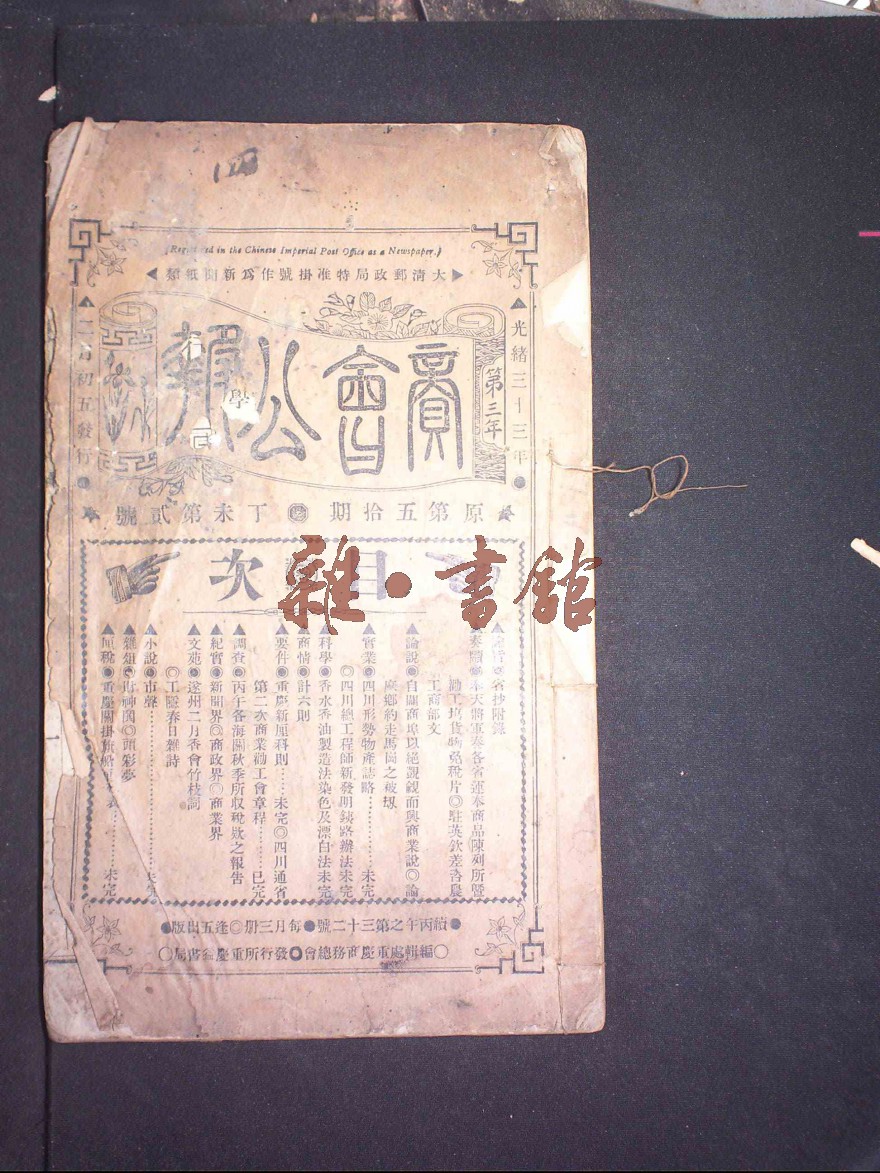 四
(Registered in the Chinese Imperial Post Office as a Newspaper.)
大清郵政局特准掛號作爲新聞紙類
光緒三十三年
第三年
廣會公報
學
二月初五發行
原第五拾期 丁未第貳號
目次
雜·書館
奏牘 天將軍奏各省運本商品陳列所曁
勸工塲貨物免稅片◎駐英欽差咨農
工商部文
論說 自闢商埠以絕覬覦而興商業說◎論
廠鄉約走馬崗之破壞
實業 四川形勢物產誌略 未完
◎四川總工程師新發明鐵路辦法未完
科學 香水香油製造法染色及漂白法未完
商情 計六則
要件 重慶新厘科則 未完◎四川通省
第二次商業勸工會章程 已完
調查 丙午各海關秋季所收稅欵之報告
紀實 新聞界◎商政界◎商業界
文苑 遂州二月香會竹枝詞
◎工餘春日雜詩
小說 市聲 未完
雜俎 財神閣◎頭彩夢
重慶關掛旗船 未完
續丙午之第三十二號●每月三册◎逢五出版
編輯處重慶商務總會 發行所重慶 書局